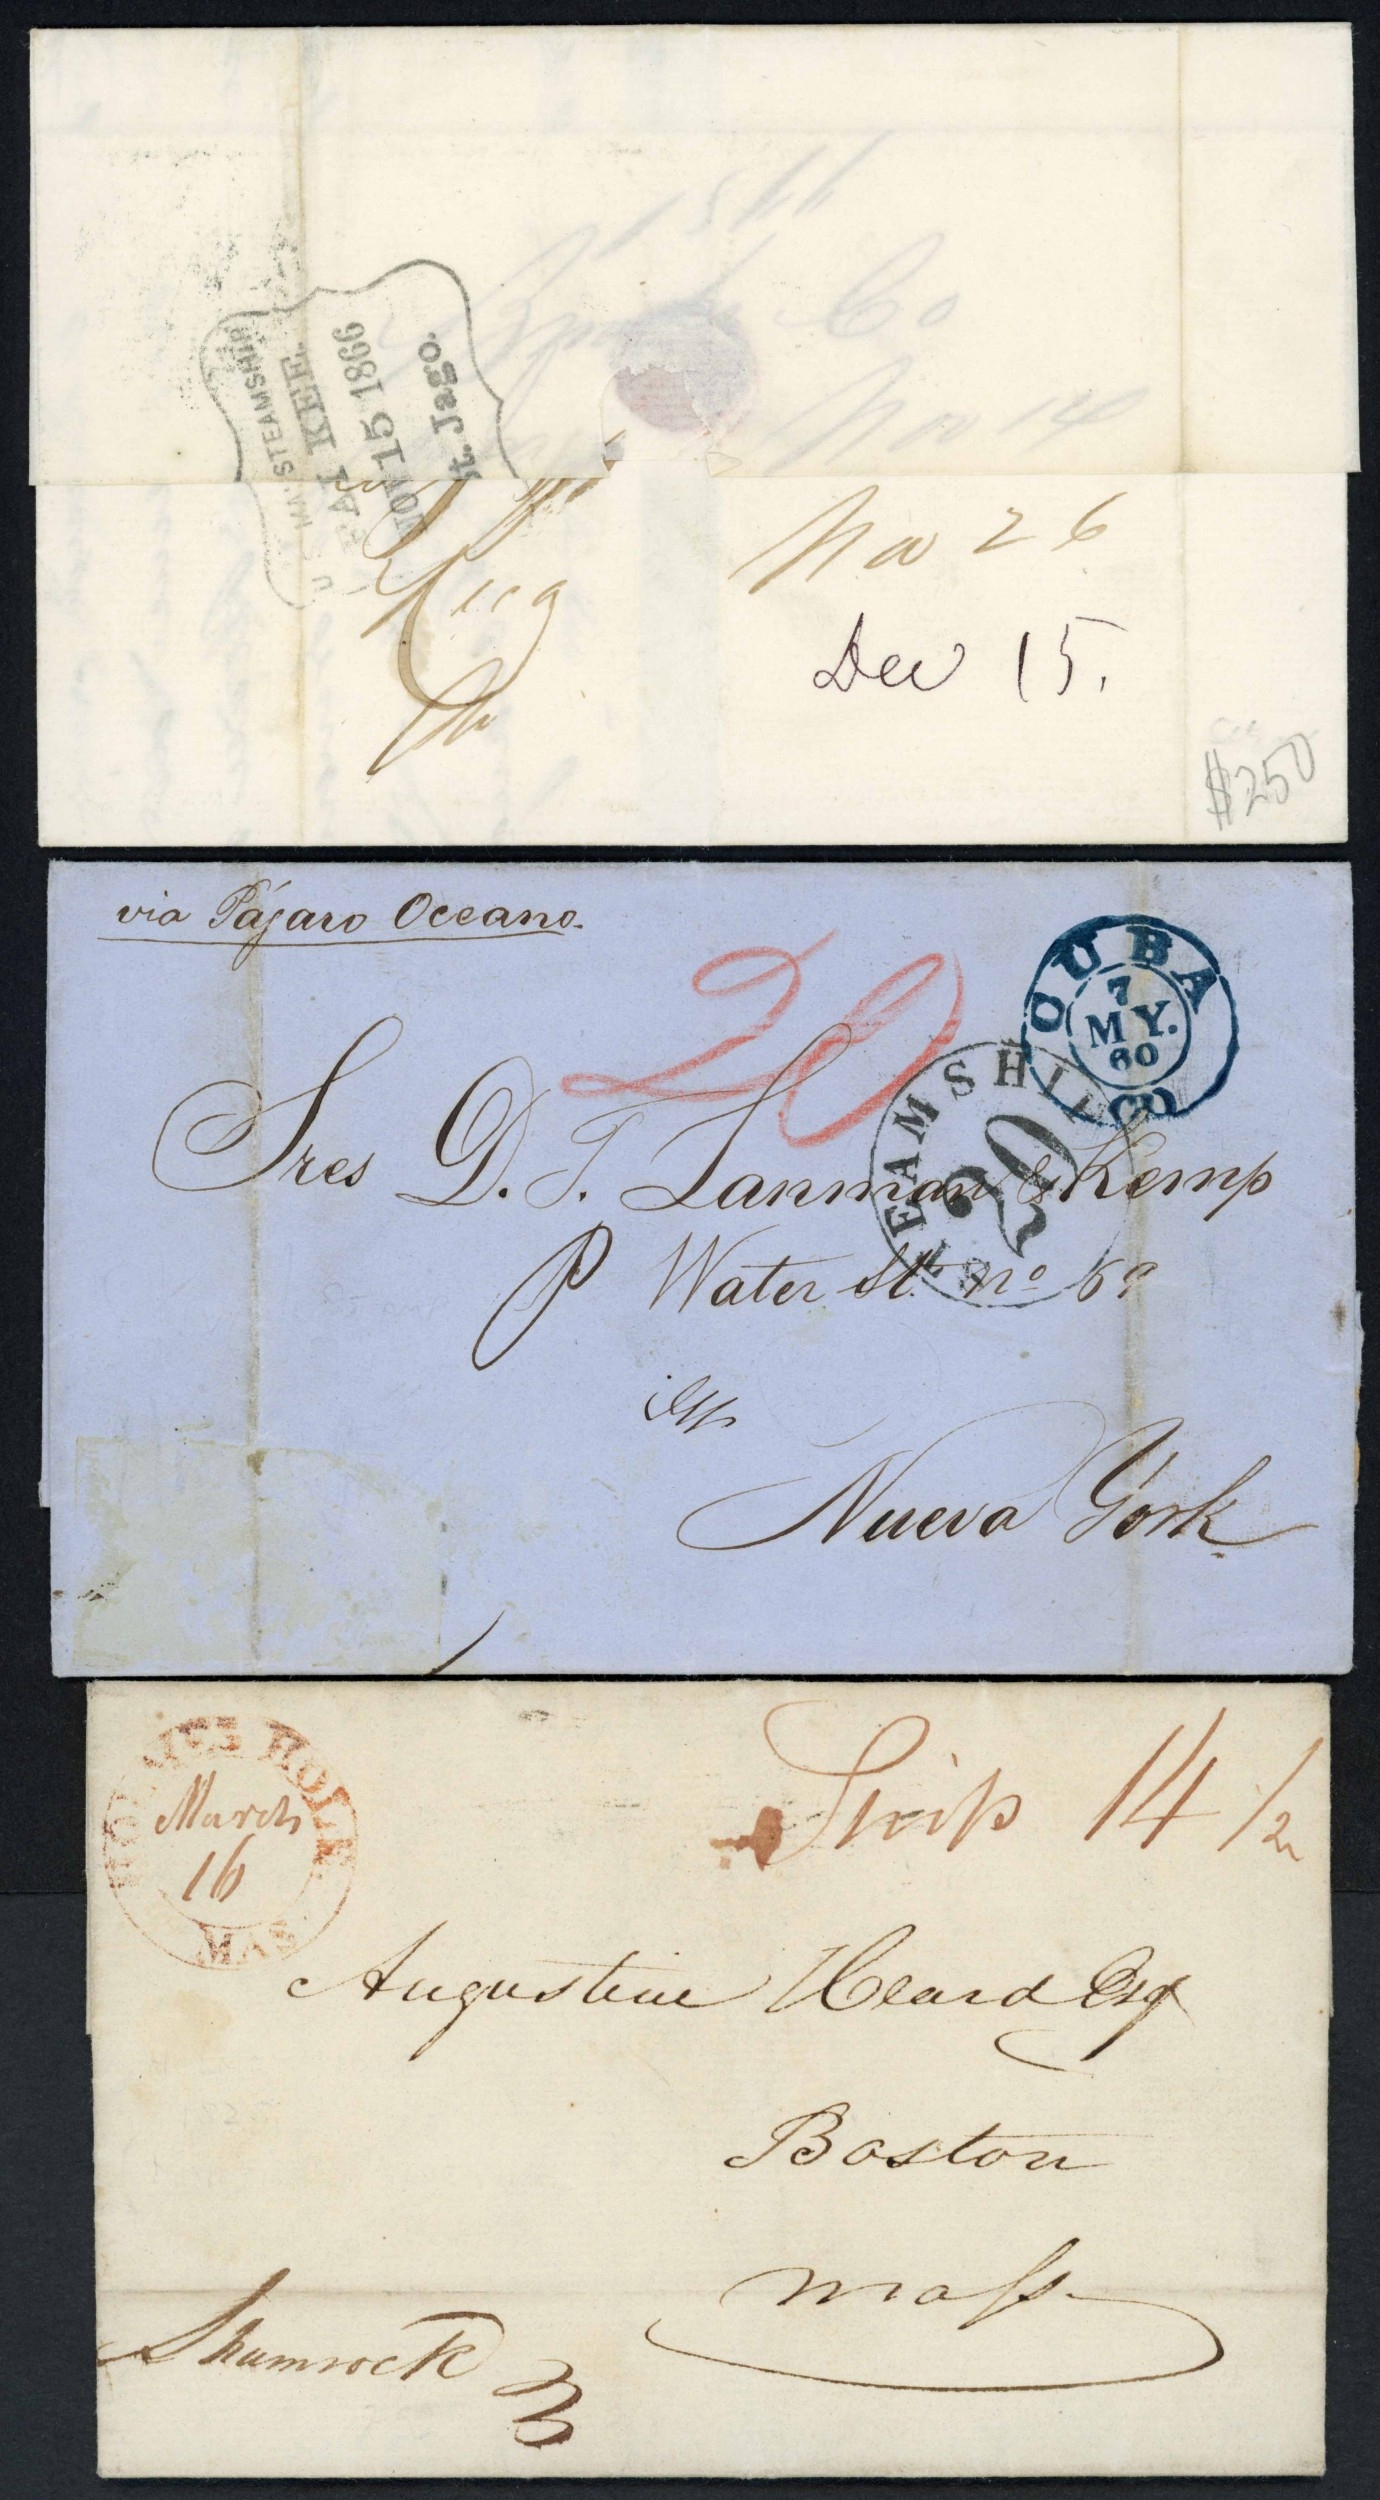 U.S. MAIL STEAMSHIP
KEE.
NOV 15 1866
St. Jago.
1866
Co
Nov 14
Nov 26
Dec 15.
$250
via Pájaro Oceano.
20
CUBA
7
MY.
60
STEAMSHIP
20
Sres D. T. Lanman & Kemp
P Water St. no 69
Nueva York
HOLMES HOLE
March
16
MAS
Ship 14 1/2
Augustine Heard Esq
Boston
Mass
Shamrock